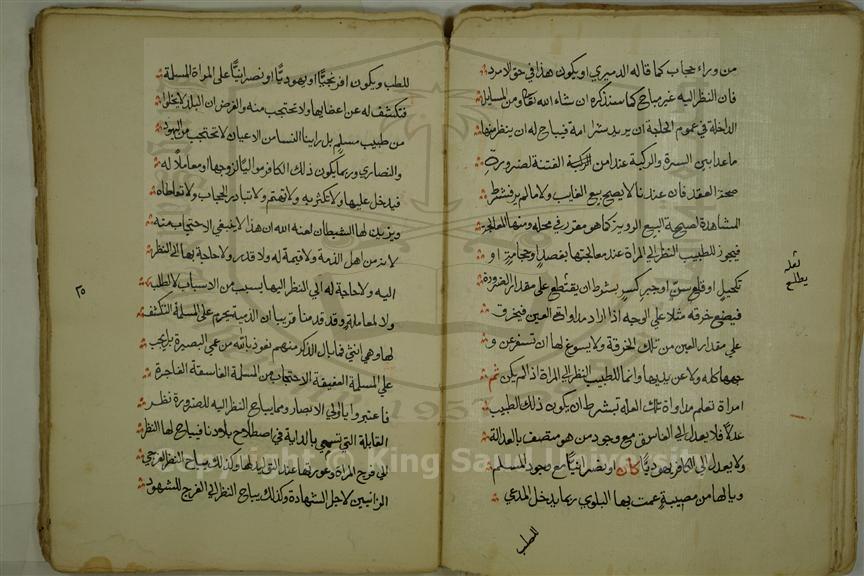 من وراء حجاب كما قاله الدميري او يكون هذا في حق الامرد
فان النظر اليه غير مباح كما سنذكره ان شاء الله تعالى ومن المسايل
الداخلة في عموم الحلية ان يريد شراء امة فيباح له ان ينظر منها
ما عدا بين السرة والركبة عند امن الفتنة لضرورة
صحة العقد فان عندنا لا يصح بيع الغايب ولا ما لم ير فنشترط
المشاهدة لصحة البيع الروية كما هو مقرر في محله ومنها المعالجة
فيجوز للطبيب النظر الى المراة عند معالجتها بفصد او حجامة او
تكحيل او قلع سن او جبر كسر بشرط ان يقتطع على مقدار الضرورة
فيضع خرقه مثلا على الوجه اذا اراد مداواة العين فيخرق
على مقدار العين من تلك الخرقة ولا يسوغ لها ان تسفر عن و
جهها كله ولا عن يديها وانما للطبيب النظر الى المراة اذا لم يكن ثم
امراة تعلم مداواة تلك العله بشرط ان يكون ذلك الطبيب
عدلا فلا يعدل الى الفاسق مع وجود من هو متصف بالعدالة
ولا يعدل الى الكافر يهوديا كان او نصرانيا مع وجود المسلم
ويا لها من مصيبة عمت بها البلوي ربما يدخل المدعي
للطب
لعله
يطلع
للطب ويكون افرنجيا او يهوديا او نصرانيا على المراة المسلمة
فتكشف له عن اعضايها ولا تحتجب منه والفرض ان البلد لا يخلوا
من طبيب مسلم بل راينا النسا من الاعيان لا تحتجب من اليهود
والنصاري وربما يكون ذلك الكافر مواليا لزوجها او معاملا له
فيدخل عليها ولا تكترث به ولا تهتم ولا تبادر للحجاب ولا تتعاطاه
ويزين لها الشيطان لعنه الله ان هذا لا ينبغي الاحتجاب منه
لانه من اهل الذمة ولا قيمة له ولا قدر ولا حاجة بها الى النظر
اليه ولا حاجة له الى النظر اليها بسبب من الاسباب لا لطب
ولا لمعاملة وقد قدمنا قريبا ان الذمية يحرم على المسلمة التكشف
لها وهي انثي فما بال الذكر منهم نعوذ بالله من عمي البصيرة بل يجب
على المسلمة العفيفة الاحتجاب من المسلمة الفاسقة الفاجرة
فاعتبروا يا اولي الابصار ومما يباح النظر اليه للضرورة نظر
القابلة التي تسمي بالداية في اصطلاح بلادنا فيباح لها النظر
الى فرج المراة وعورتها عند التوليد لها وكذلك يباح النظر لفرجي
الزانيين لاجل الشهادة وكذلك يباح النظر الى الفرج للشهود
٢٥
Copyright © King Saud University
1957